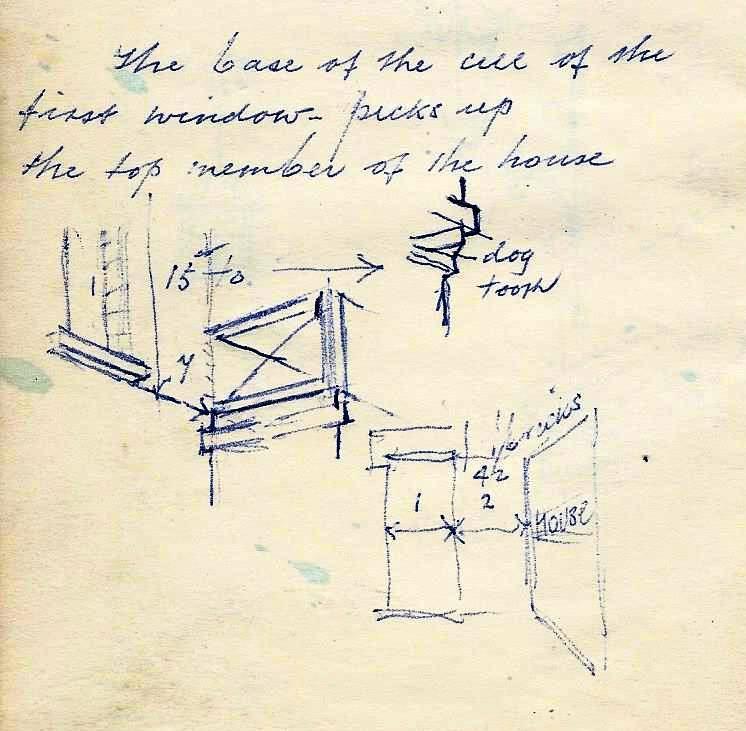 The base of the cill of the
first window - picks up
the top member of the house
1
15
dog
tooth
7
4½
1
2
HOUSE